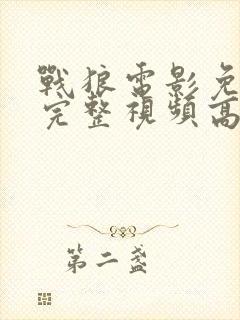 戰狼電影免
完整視頻高
第二盏